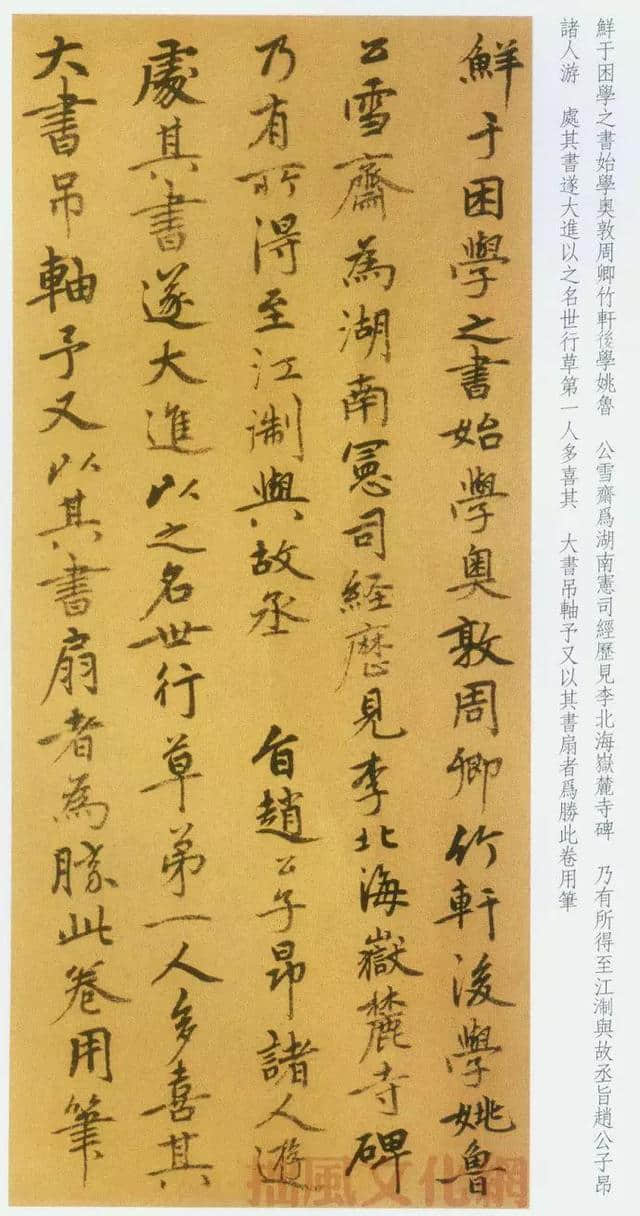 鮮于困學之書始學奧敦周卿竹軒後學姚魯　公雪齋爲湖南憲司經歷見李北海嶽麓寺碑　乃有所得至江淛與故丞旨趙公子昂
諸人游　處其書遂大進以之名世行草第一人多喜其　大書吊軸予又以其書扇者爲勝此卷用筆
鮮于困學之書始學奧敦周卿竹軒後學姚魯
公雪齋為湖南憲司經歷見李北海嶽麓寺碑
乃有所得至江淛與故丞　旨趙公子昂諸人遊
處其書遂大進以之名世行草第一人多喜其
大書吊軸予又以其書扇者為勝此卷用筆
拙風文化網